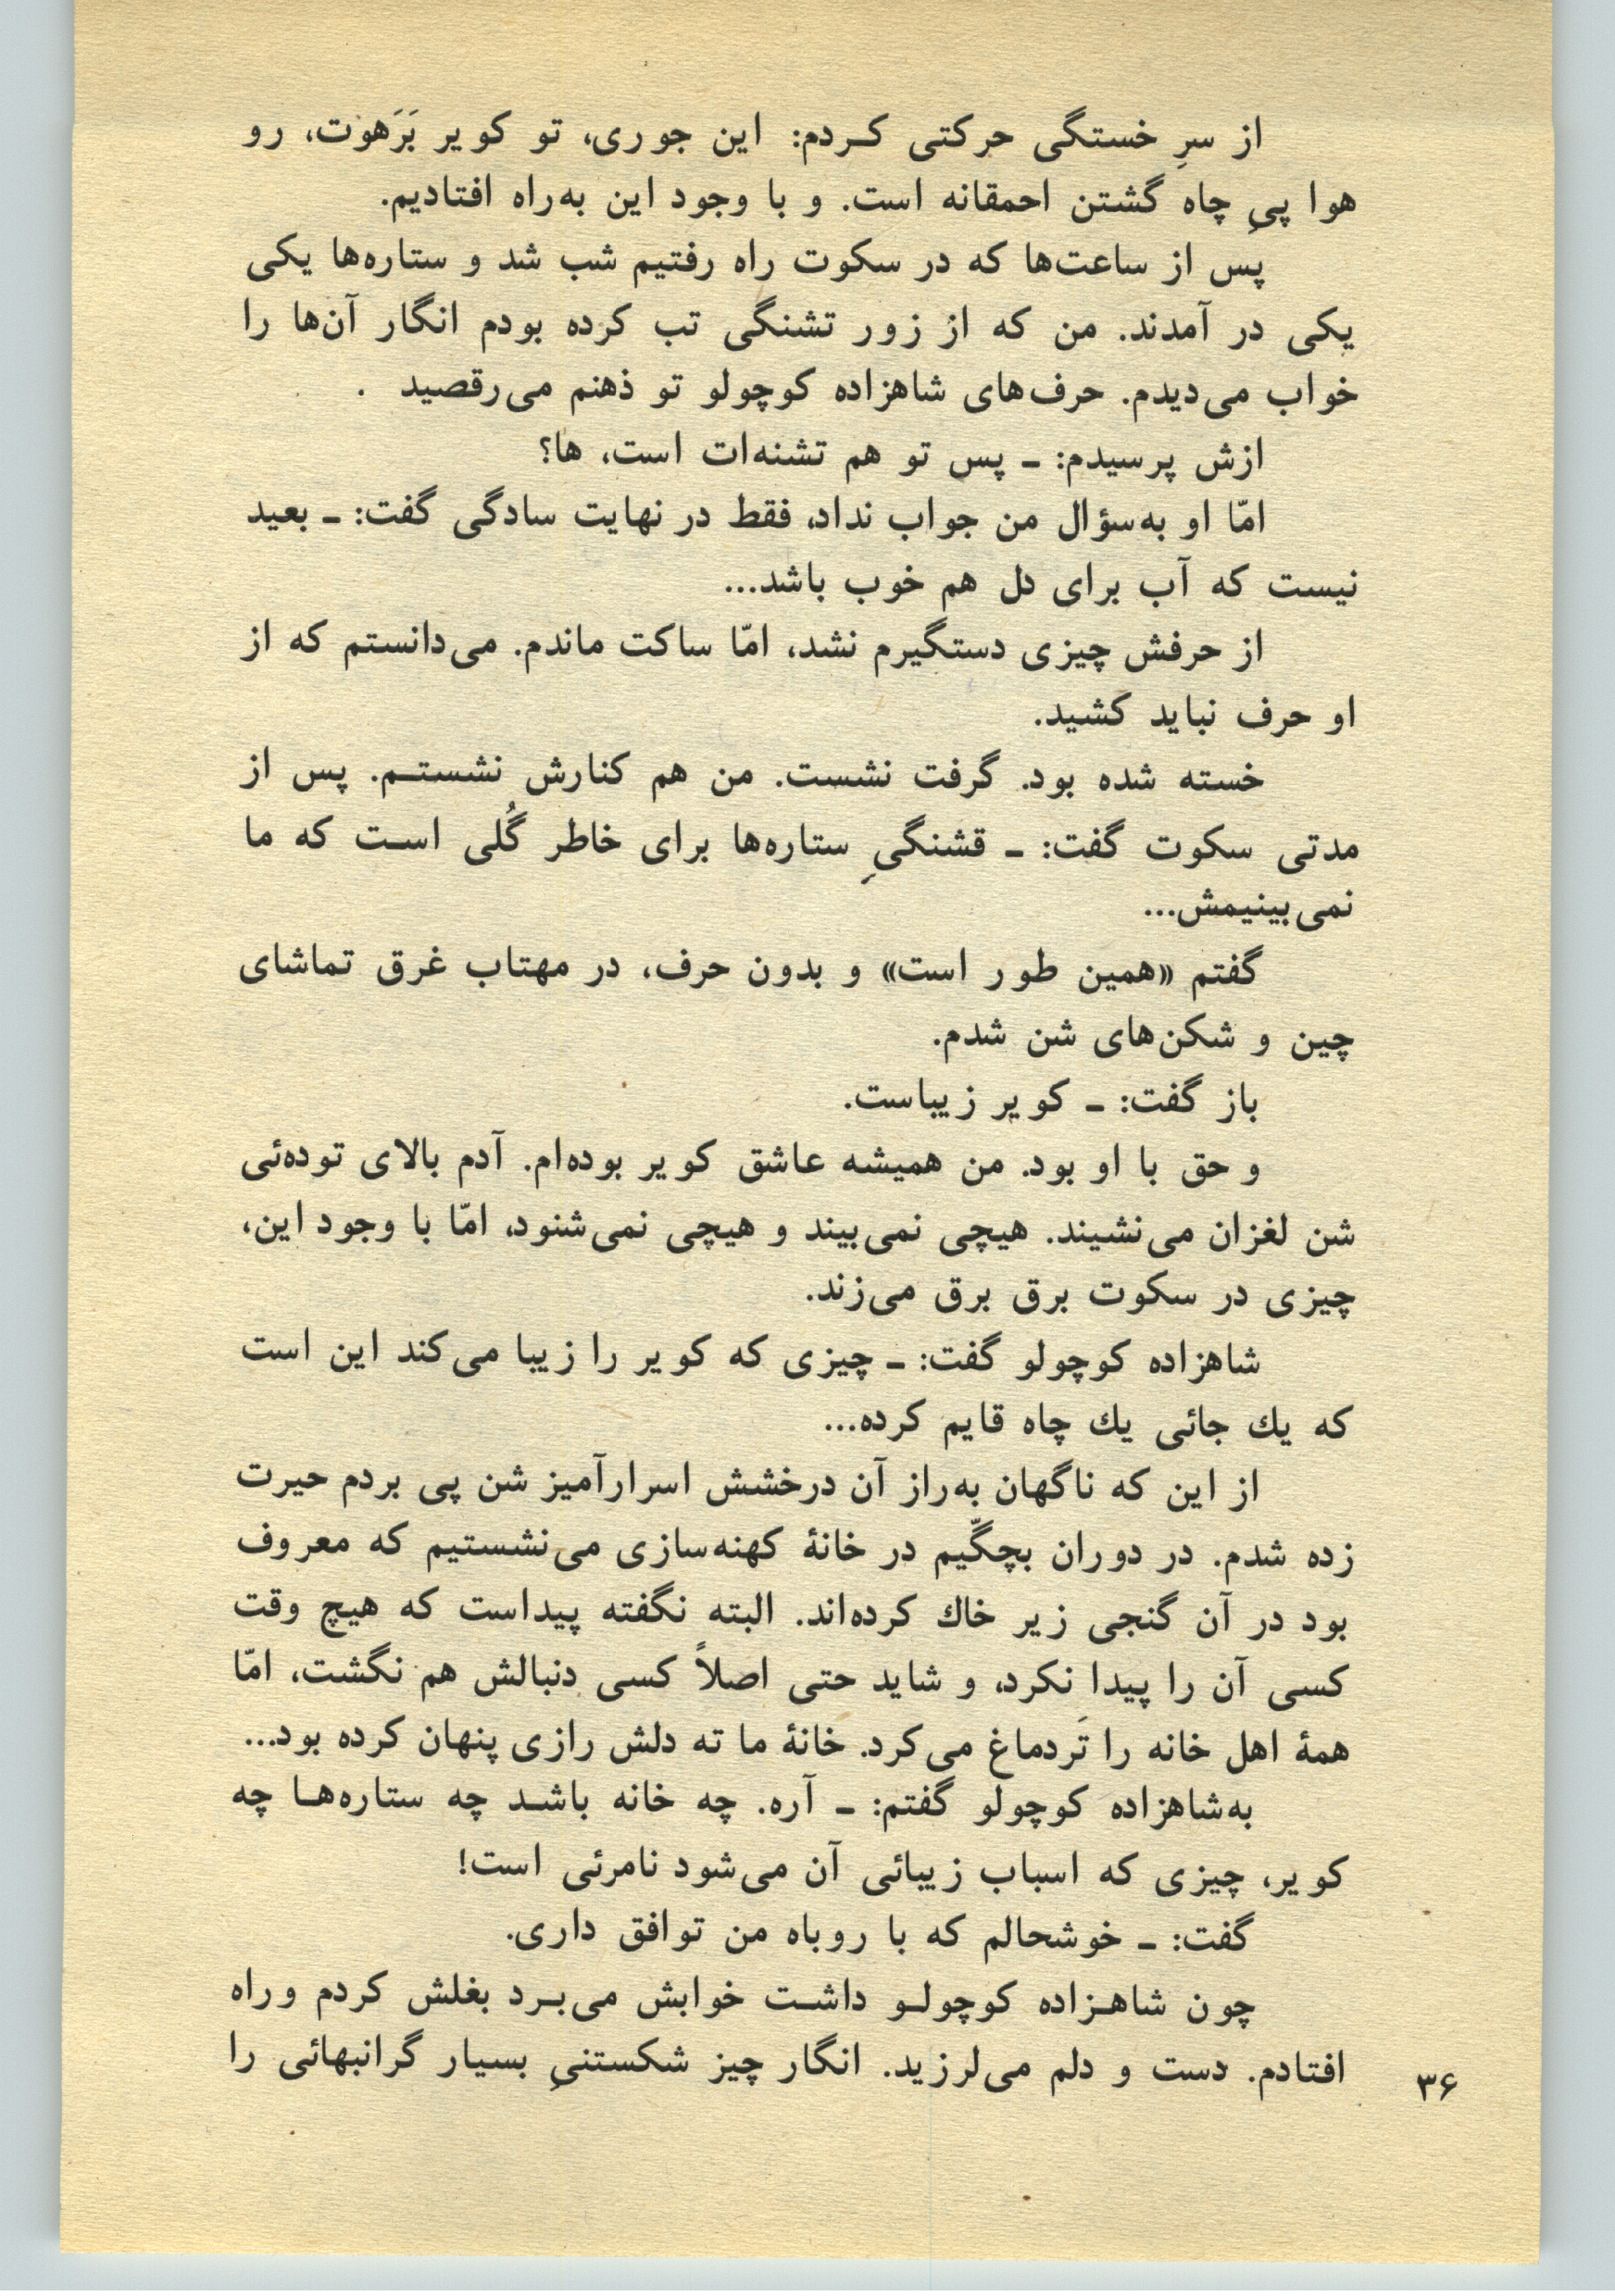 از سرِ خستگی حرکتی کردم: این جوری، تو کویر بَرَهوت، رو
هوا پیِ چاه گشتن احمقانه است. و با وجود این به‌راه افتادیم.
پس از ساعت‌ها که در سکوت راه رفتیم شب شد و ستاره‌ها یکی
یکی در آمدند. من که از زور تشنگی تب کرده بودم انگار آن‌ها را
خواب می‌دیدم. حرف‌های شاهزاده کوچولو تو ذهنم می‌رقصید .
ازش پرسیدم: ـ پس تو هم تشنه‌ات است، ها؟
امّا او به‌سؤال من جواب نداد، فقط در نهایت سادگی گفت: ـ بعید
نیست که آب برای دل هم خوب باشد...
از حرفش چیزی دستگیرم نشد، امّا ساکت ماندم. می‌دانستم که از
او حرف نباید کشید.
خسته شده بود. گرفت نشست. من هم کنارش نشستم. پس از
مدتی سکوت گفت: ـ قشنگیِ ستاره‌ها برای خاطر گُلی است که ما
نمی‌بینیمش...
گفتم «همین طور است» و بدون حرف، در مهتاب غرق تماشای
چین و شکن‌های شن شدم.
باز گفت: ـ کویر زیباست.
و حق با او بود. من همیشه عاشق کویر بوده‌ام. آدم بالای توده‌ئی
شن لغزان می‌نشیند. هیچی نمی‌بیند و هیچی نمی‌شنود، امّا با وجود این،
چیزی در سکوت برق برق می‌زند.
شاهزاده کوچولو گفت: ـ چیزی که کویر را زیبا می‌کند این است
که یك جائی یك چاه قایم کرده...
از این که ناگهان به‌راز آن درخشش اسرارآمیز شن پی بردم حیرت
زده شدم. در دوران بچگّیم در خانهٔ کهنه‌سازی می‌نشستیم که معروف
بود در آن گنجی زیر خاك کرده‌اند. البته نگفته پیداست که هیچ وقت
کسی آن را پیدا نکرد، و شاید حتی اصلاً کسی دنبالش هم نگشت، امّا
همهٔ اهل خانه را تَردماغ می‌کرد. خانهٔ ما ته دلش رازی پنهان کرده بود...
به‌شاهزاده کوچولو گفتم: ـ آره. چه خانه باشد چه ستاره‌ها چه
کویر، چیزی که اسباب زیبائی آن می‌شود نامرئی است!
گفت: ـ خوشحالم که با روباه من توافق داری.
چون شاهزاده کوچولو داشت خوابش می‌برد بغلش کردم وراه
افتادم. دست و دلم می‌لرزید. انگار چیز شکستنیِ بسیار گرانبهائی را
۳۶